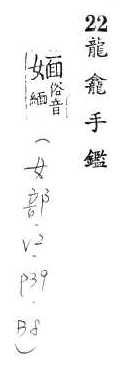 22龍龕手鑑
媔俗音緬(女部·V2·P39·B8)